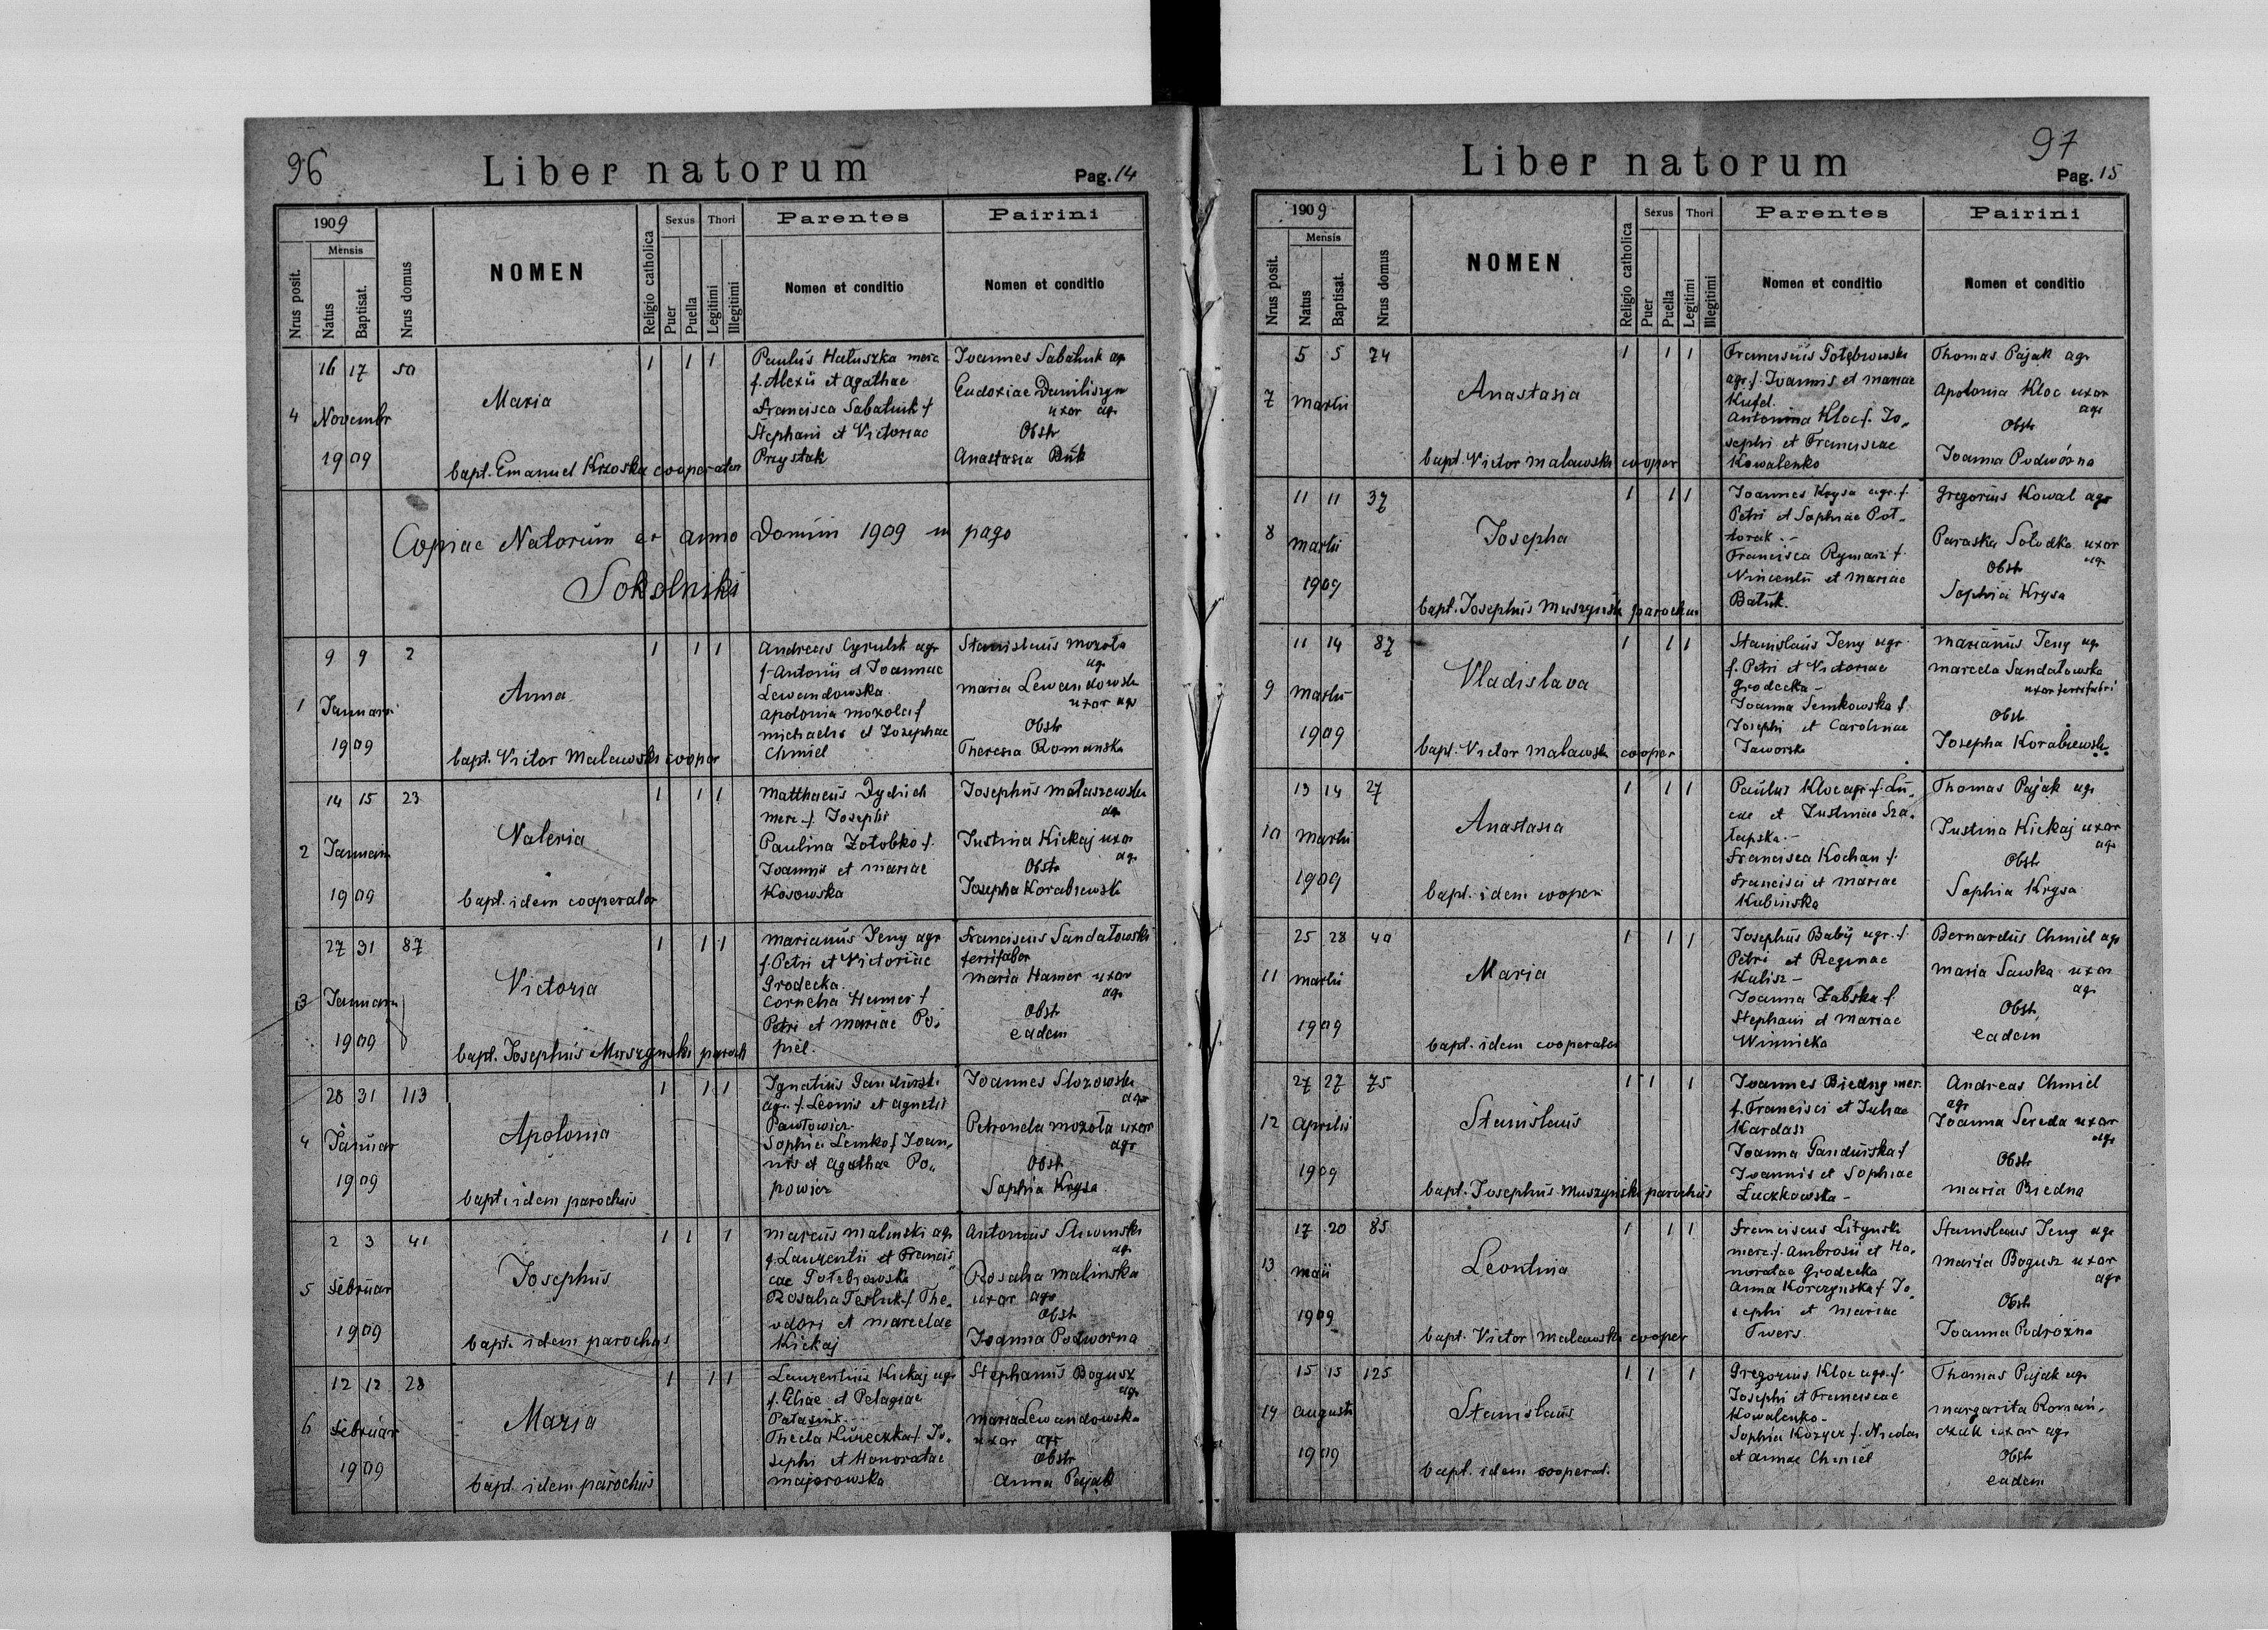 96
Liber natorum
Pag. 14
1909
Mensis
Nrus posit.
Natus
Baptisat.
Nrus domus
NOMEN
Religio catholica
Sexus
Puer
Puella
Thori
Legitimi
Illegitimi
Parentes
Nomen et conditio
Pairini
Nomen et conditio
4
16 17 50
Novembr
1909
Maria
bapt. Emanuel Krzoska cooperator
1 1 1
Paulus Hałuszka merc
f. Alexii et Agathae
Francisca Sabatiuk f
Stephani et Victoriae
Przystak
Joannes Sabatiuk agr
Eudoxiae Daniliszyn
uxor agr
Obstr
Anastasia
Copiae Natorum ex anno Domini 1909 in pago
Sokolniki
1
9 9 2
Januari
1909
Anna
bapt. Victor Malawski cooper
1 1 1
Andreas Cyrulik agr
f. Antonii et Joannae
Lewandowska
Apolonia Mozola f
Michaelis et Josephae
Chmiel
Stanislaus Mozoła
agr
Maria Lewandowska
uxor agr
Obstr
Theresia Romanska
2
14 15 23
Januari
1909
Valeria
bapt. idem cooperator
1 1 1
Matthaeus Dydich
merc. f. Josephi
Paulina Zołobko f.
Joannis et Mariae
Kosowska
Josephus Małaszewski
agr
Justina Kickaj uxor
agr
Obstr
Josepha Korabiewska
3
27 31 87
Januari
1909
Victoria
bapt. Josephus Muszynski paroch
1 1 1
Marianus Jeny agr
f. Petri et Victoriae
Grodecka.
Cornelia Hamer f
Petri et Mariae Po,
piel.
Franciscus Sandałowski
ferrifaber
Maria Hamer uxor
agr
Obstr
eadem
4
28 31 113
Januar
1909
Apolonia
bapt. idem parochus
1 1 1
Ignatius Gandurski
agr. f. Leonis et Agnetis
Pawłowicz
Sophia Lemko f Joan,
nis et Agathae Po,,
powicz
Joannes Slozowski
agr
Petronela Mozoła uxor
agr
Obstr
Sophia Krysa
5
2 3 41
Februar
1909
Josephus
bapt. idem parochus
1 1 1
Marcus Malinski agr
f. Laurentii et Francis,,
cae Gołebiowska
Rosalia Tesluk f. The,
odori et Marcelae
Kickaj
Antonius Sliwinski
agr
Rosalia Malinska
uxor agr
Obstr
Joanna Podworna
6
12 12 28
Februar
1909
Maria
bapt. idem parochus
1 1 1
Laurentius Kickaj agr
f. Eliae et Pelagiae
Thecla Kureczka f. Jo,
sephi et Honoratae
Majorowska
Stephanus Bogusz
agr
Maria Lewandowska
uxor agr
Obstr
Anna Pająk
97
Liber natorum
Pag. 15
1909
Mensis
Nrus posit.
Natus
Baptisat.
Nrus domus
NOMEN
Religio catholica
Sexus
Puer
Puella
Thori
Legitimi
Illegitimi
Parentes
Nomen et conditio
Pairini
Nomen et conditio
7
5 5 74
Martii
Anastasia
bapt. Victor Malawski cooper
1 1 1
Franciscus Gołębiowski
agr. f. Joannis et Mariae
Kufel.
Antonina Kloc f. Jo,,
sephi et Franciscae
Kowalenko
Thomas Pająk agr
Apolonia Kloc uxor
agr
Obstr
Joanna Podwórna
8
11 11 37
Martii
1909
Josepha
bapt. Josephus Muszyński parochus
1 1 1
Joannes Krysa agr. f.
Petri et Sophiae Poł,
torak.-
Francisca Rymarz f.
Vincentii et Mariae
Batuk.
Gregorius Kowal agr
Paraska Sołodka uxor
agr
Obstr
Sophia Krysa
9
11 14 87
Martii
1909
Vladislava
bapt. Victor Malawski cooper
1 1 1
Stanislaus Jeny agr.
f. Petri et Victoriae
Grodecka-
Joanna Semkowska f.
Josephi et Carolinae
Jaworska
Marianus Jeny agr
Marcela Sandałowska
uxor ferrifabri
Obstr
Josepha Korabiewska.
10
13 14 27
Martii
1909
Anastasia
bapt. idem cooper
1 1 1
Paulus Kloc agr. f. Lu,
cae et Justinae Sza,
łapska.-
Francisca Kochan f.
Francisci et Mariae
Kubinska
Thomas Pająk agr
Justina Kickaj uxor
agr
Obstr
Sophia Krysa
11
25 28 40
Martii
1909
Maria
bapt. idem cooperator
1 1 1
Josephus Babij agr. f.
Petri et Reginae
Kulisz-
Joanna Zabska f.
Stephani et Mariae
Winnicka
Bernardus Chmiel agr
Maria Sawka uxor
agr
Obstr
eadem
12
27 27 75
Aprilis
1909
Stanislaus
bapt. Josephus Muszynski parochus
1 1 1
Joannes Biedny mer.
f. Francisci et Juliae
Kardasz
Joanna Gandurska f
Joannis et Sophiae
Łuczkowska-
Andreas Chmiel
agr
Joanna Sereda uxor
agr
Obstr
Maria Biedna
13
17 20 85
Maii
1909
Leontina
bapt. Victor Malawski cooper
1 1 1
Franciscus Litynski
merc. f. Ambrosii et Ho,
noratae Grodecka
Anna Korczynska f. Jo,
sephi et Mariae
Twers.
Stanislaus Jeny agr
Maria Bogusz uxor
agr
Obstr
Joanna Podrożna
14
15 15 125
Augusti
1909
Stanislaus
bapt. idem cooperat.
1 1 1
Gregorius Kloc agr. f.
Josephi et Franciscae
Kowalenko-
Sophia Kozycz f. Nicolai
et Annae Chmiel
Thomas Pająk agr
Margarita Roman,
czuk uxor agr
Obstr
eadem